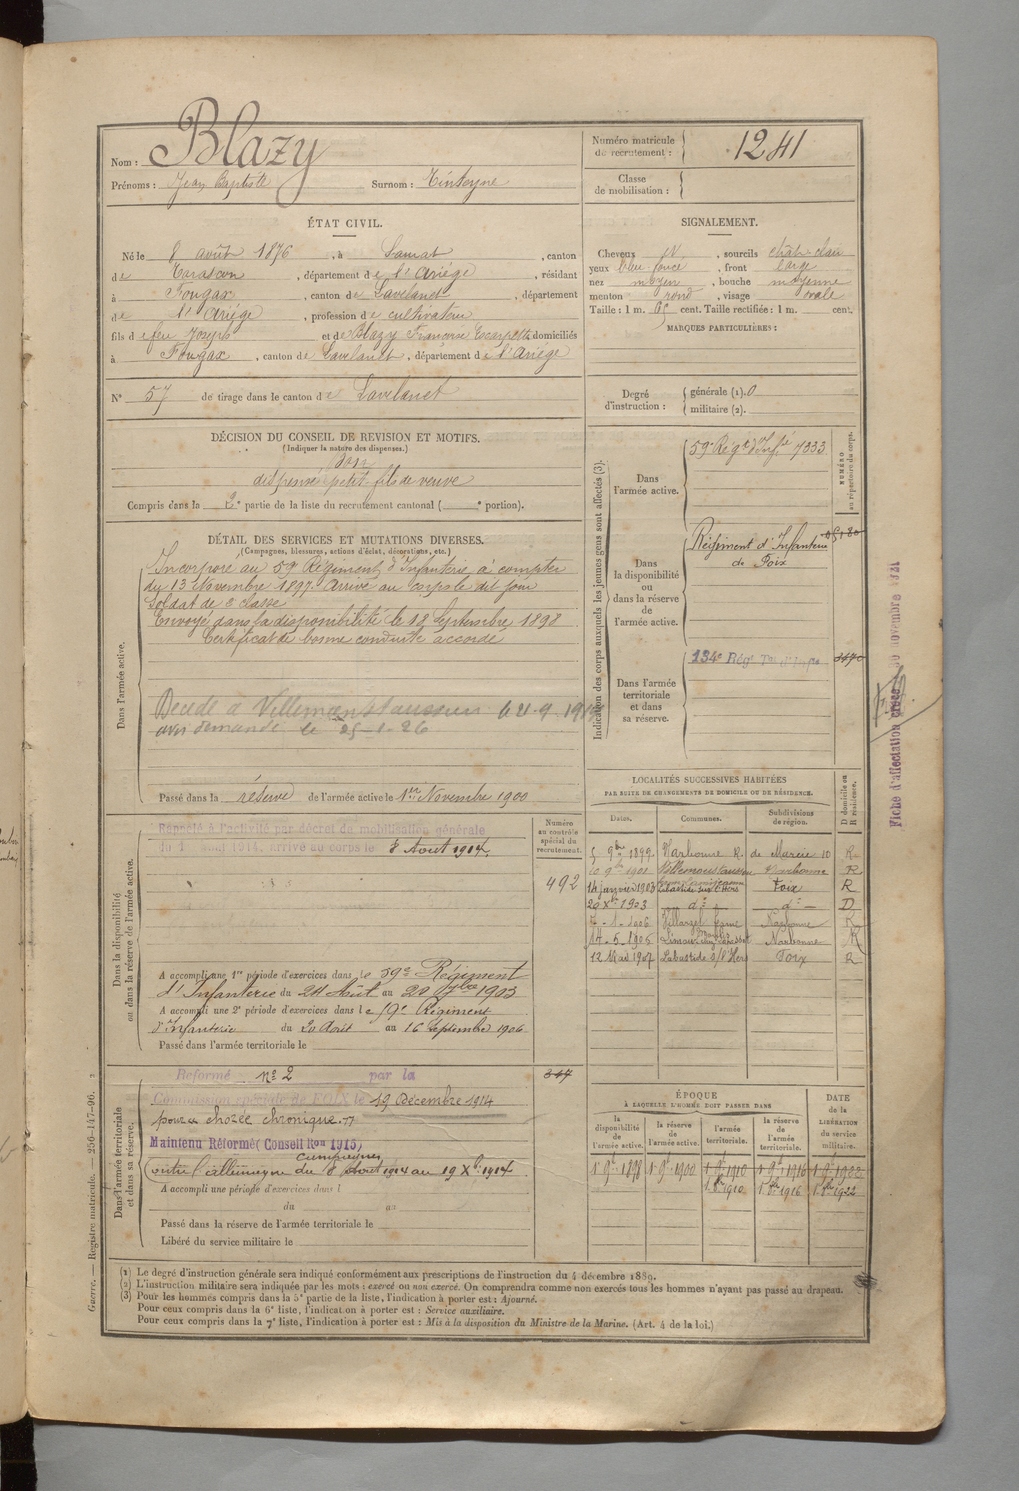 Nom : Blazy
Prénoms : Jean Baptiste Surnom : Tintoyne
Numéro matricule de recrutement : 1241
Classe de mobilisation :
ÉTAT CIVIL.
Né le 8 août 1876, à Surnat, canton
de Tarascon, département de l'Ariége, résidant
à Fougax, canton de Lavelanet, département
de l'Ariége, profession de cultivateur
fils de feu Joseph et de Blazy Françoise Escarpelle domiciliés
à Fougax, canton de Lavelanet, département de l'Ariége
N° 57 de tirage dans le canton de Lavelanet
SIGNALEMENT.
Cheveux N, sourcils chât-clair
yeux bleu foncé, front large
nez moyen, bouche moyenne
menton rond, visage ovale
Taille : 1 m. 65 cent. Taille rectifiée : 1 m. cent.
MARQUES PARTICULIÈRES :
Degré d'instruction : générale (1). 0
militaire (2).
DÉCISION DU CONSEIL DE REVISION ET MOTIFS.
(Indiquer la nature des dispenses.)
Bon
dispensé petit-fils de veuve
Compris dans la 2e partie de la liste du recrutement cantonal ( e portion).
DÉTAIL DES SERVICES ET MUTATIONS DIVERSES.
(Campagnes, blessures, actions d'éclat, décorations, etc.)
Dans l'armée active.
Incorporé au 59e Régiment d'Infanterie à compter
du 13 Novembre 1897. Arrivé au corps le dit jour
Soldat de 2 classe
Envoyé dans la disponibilité le 18 Septembre 1898
Certificat de bonne conduite accordé
Décédé à Villemoustaussou le 21-9-19
avis demandé le 25-1-26
Passé dans la réserve de l'armée active le 1er Novembre 1900
Indication des corps auxquels les jeunes gens sont affectés (3).
NUMÉRO au répertoire du corps.
Dans l'armée active.
59e Régt d'Infie 7333
Dans la disponibilité ou dans la réserve de l'armée active.
Régiment d'Infanterie
de Foix
Dans l'armée territoriale et dans sa réserve.
134e Régt Ter d'Infie 3470
Fiche d'affectation créée 30 novembre
Dans la disponibilité ou dans la réserve de l'armée active.
Numéro au contrôle spécial du recrutement.
Rappelé à l'activité par décret de mobilisation générale
du 1 août 1914, arrivé au corps le 8 Août 1914.
492
A accompli une 1re période d'exercices dans le 59e Régiment
d'Infanterie du 24 Août au 20 7bre 1903
A accompli une 2e période d'exercices dans le 59e Régiment
d'Infanterie du 20 Août au 16 Septembre 1906
Passé dans l'armée territoriale le
LOCALITÉS SUCCESSIVES HABITÉES
PAR SUITE DE CHANGEMENTS DE DOMICILE OU DE RÉSIDENCE.
Dates. Communes. Subdivisions de région. D domicile ou R résidence.
5 9bre 1899. Narbonne R. de Marcie 10 R
10 9bre 1901 Villemoustaussou Narbonne R
14 janvier 1903 Labastide sur l'Hers Foix R
20 Xbre 1903 d° d° D
7-1-1906 Villarzel Narbonne R
14-5-1906 Narbonne R
12 Mai 1907 Labastide s/l'Hers Foix R
Dans l'armée territoriale et dans sa réserve.
Réformé n° 2 par la 347
Commission spéciale de FOIX le 19 Décembre 1914
pour chorée chronique.
Maintenu Réformé (Conseil Ron 1915)
Campagnes
contre l'allemagne du 8 Août 1914 au 19 Xbre 1914
A accompli une période d'exercices dans l
du au
Passé dans la réserve de l'armée territoriale le
Libéré du service militaire le
ÉPOQUE
À LAQUELLE L'HOMME DOIT PASSER DANS
la disponibilité de l'armée active. la réserve de l'armée active. l'armée territoriale. la réserve de l'armée territoriale. DATE de la LIBÉRATION du service militaire.
1er 9bre 1898 1er 9bre 1900 1er 9bre 1910 1er 9bre 1916 1er 9bre 1922
1er 8bre 1910 1er 8bre 1916 1er 8bre 1922
(1) Le degré d'instruction générale sera indiqué conformément aux prescriptions de l'instruction du 4 décembre 1889.
(2) L'instruction militaire sera indiquée par les mots : exercé ou non exercé. On comprendra comme non exercés tous les hommes n'ayant pas passé au drapeau.
(3) Pour les hommes compris dans la 5e partie de la liste, l'indication à porter est : Ajourné.
Pour ceux compris dans la 6e liste, l'indication à porter est : Service auxiliaire.
Pour ceux compris dans la 7e liste, l'indication à porter est : Mis à la disposition du Ministre de la Marine. (Art. 4 de la loi.)
Guerre. — Registre matricule. — 256-147-96.